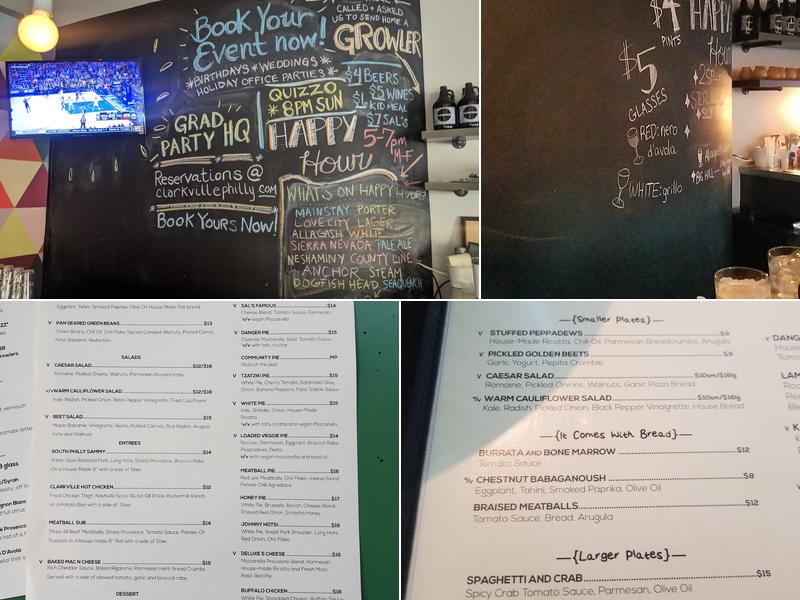 Book Your
Event now!
*BIRTHDAYS*WEDDINGS*
HOLIDAY OFFICE PARTIES*
CALLED + ASKED
US TO SEND HOME A
GROWLER
$4 BEERS
$5 WINES
$6 KID MEAL
$7 SAL'S
QUIZZO
*8PM SUN
GRAD
PARTY HQ
HAPPY
Hour
5-7pm
M-F
Reservations @
clarkvillephilly.com
Book Yours Now!
WHAT'S ON HAPPY HOUR?
MAINSTAY PORTER
LOVE CITY LAGER
ALLAGASH WHITE
SIERRA NEVADA PALE ALE
NESHAMINY COUNTY LINE
ANCHOR STEAM
DOGFISH HEAD SEAQUENCH
$4
PINTS
HAPPY
Hour
$5
GLASSES
RED: nero
d'avola
WHITE: grillo
Eggplant, Tahini, Smoked Paprika, Olive Oil House Made Flat bread
V PAN SEARED GREEN BEANS $13
Green Beans, Chili Oil, Chili Flake, Spiced Candied Walnuts, Pickled Carrot,
Feta, Balsamic Reduction
SALADS
V CAESAR SALAD $12/$18
Romaine, Pickled Onions, Walnuts, Parmesan Breadcrumbs
v/vWARM CAULIFLOWER SALAD $12/$18
Kale, Radish, Pickled Onion, Black Pepper Vinaigrette, Fried Cauliflower
V BEET SALAD $15
Maple Balsamic Vinaigrette, Beets, Pickled Carrots, Red Radish, Arugula
Feta and Walnuts
ENTREES
SOUTH PHILLY SAMMY $14
Italian Slow Roasted Pork, Long Hots, Sharp Provolone, Broccoli Rabe,
On a House Made 6" with a side of Slaw
CLARKVILLE HOT CHICKEN $12
Fried Chicken Thigh, Nashville Spice Blend, Dill Pickle, Buttermilk Ranch,
on a Potato Bun with a side of Slaw
MEATBALL SUB $14
Three All Beef Meatballs, Sharp Provolone, Tomato Sauce, Parsley Oil
Toasted on a house made 6" Roll with a side of Slaw
V BAKED MAC N CHEESE $15
Rich Cheddar Sauce, Baked Rigatonis, Parmesan Herb Bread Crumbs,
Served with a side of stewed tomato, garlic and broccoli rabe.
DESSERT
V SAL'S FAMOUS $14
Cheese Blend, Tomato Sauce, Parmesan
*v/v vegan Mozzarella
V DANGER PIE $15
Clarkville Mozzarella, Basil, Tomato Sauce
*v/v with tofu ricotta
COMMUNITY PIE MP
Pizza of the day!
V TZATZIKI PIE $15
White Pie, Cherry Tomato, Kalamata Olive,
Onion, Banana Peppers, Feta Tzatziki Sauce
V WHITE PIE $15
Kale, Shiitake, Onion, House-Made
Ricotta,
*v/v with tofu ricotta and vegan Mozzarella
V LOADED VEGGIE PIE $14
Red pie, Parmesan, Eggplant, Broccoli Rabe,
Provolone, Pesto
v/v with vegan mozzarella and basil oil
MEATBALL PIE $16
Red pie Meatballs, Chili Flake, cheese blend
Fennel Chili Agrodolce
HONEY PIE $17
White Pie, Brussels, Bacon, Cheese Blend,
Shaved Red Onion, Sriracha Honey
JOHNNY HOTS! $18
White Pie, Roast Pork Shoulder, Long Hots,
Red Onion, Chili Oil
V DELUXE S CHEESE $16
Mozzarella Provolone Blend, Parmesan,
House-made Ricotta and Fresh Mozz
Basil, Red Pie
BUFFALO CHICKEN $16
—{Smaller Plates}—
V STUFFED PEPPADEWS $9
House-Made Ricotta, Chili Oil, Parmesan Breadcrumbs, Arugula
V PICKLED GOLDEN BEETS $9
Garlic Yogurt, Pepita Crumble
V CAESAR SALAD $10sm/$16lg
Romaine, Pickled Onions, Walnuts, Garlic Pizza Bread
V/V WARM CAULIFLOWER SALAD $10sm/$16lg
Kale, Radish, Pickled Onion, Black Pepper Vinaigrette, House Bread
—{It Comes With Bread}—
BURRATA AND BONE MARROW $12
Tomato Sauce
V/V CHESTNUT BABAGANOUSH $8
Eggplant, Tahini, Smoked Paprika, Olive Oil
BRAISED MEATBALLS $12
Tomato Sauce, Bread, Arugula
—{Larger Plates}—
SPAGHETTI AND CRAB $15
Spicy Crab Tomato Sauce, Parmesan, Olive Oil